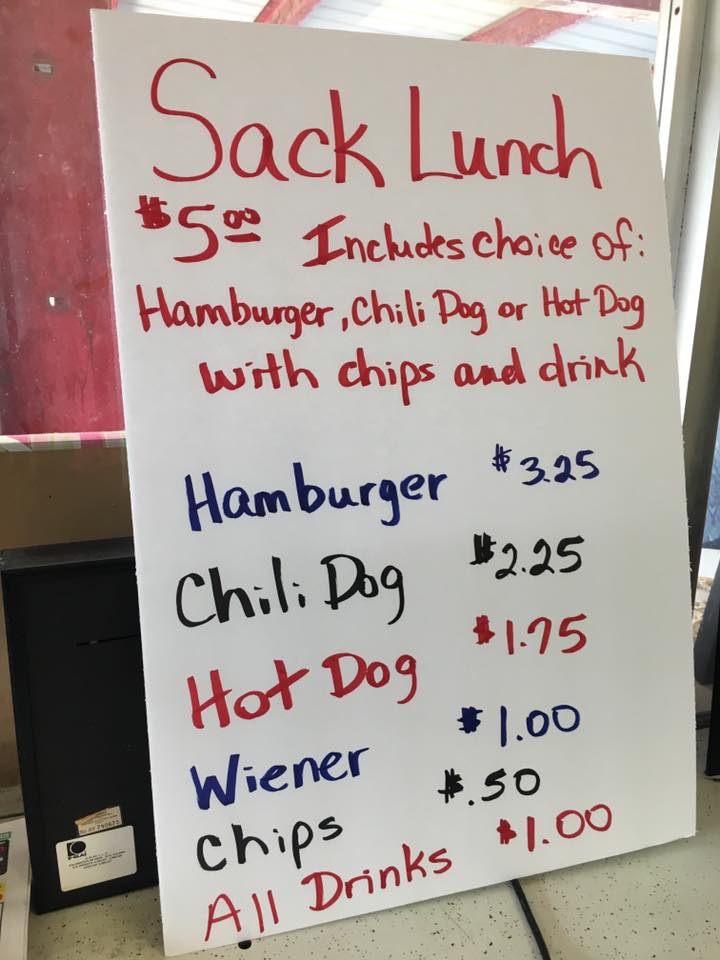 Sack Lunch
$5.00 Includes choice of:
Hamburger, Chili Dog or Hot Dog
with chips and drink
Hamburger $3.25
Chili Dog $2.25
Hot Dog $1.75
Wiener $1.00
Chips $.50
All Drinks $1.00